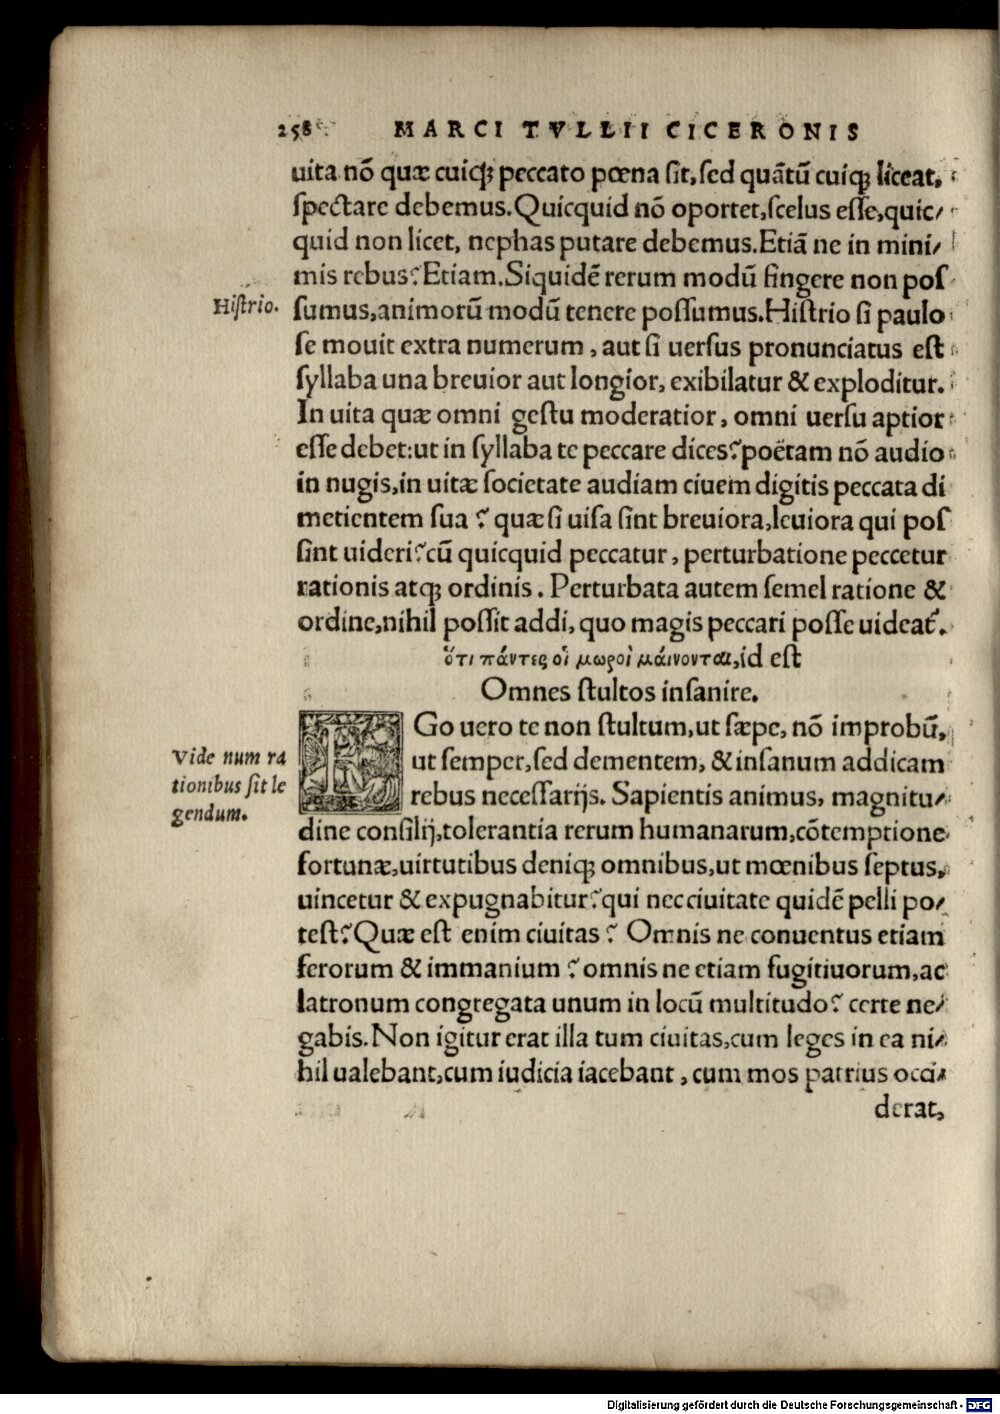 258 MARCI TVLLII CICERONIS
uita nõ quæ cuiq̃ peccato pœna sit, sed quãtũ cuiq̃ liceat,
spectare debemus. Quicquid nõ oportet, scelus esse, quic/
quid non licet, nephas putare debemus. Etiã ne in mini/
mis rebus? Etiam. Siquidẽ rerum modũ fingere non pos
Histrio.
sumus, animorũ modũ tenere possumus. Histrio si paulo
se mouit extra numerum, aut si uersus pronunciatus est
syllaba una breuior aut longior, exibilatur & exploditur.
In uita quæ omni gestu moderatior, omni uersu aptior
esse debet: ut in syllaba te peccare dices? poëtam nõ audio
in nugis, in uitæ societate audiam ciuem digitis peccata di
metientem sua? quæ si uisa sint breuiora, leuiora qui pos
sint uideri? cũ quicquid peccatur, perturbatione peccetur
rationis atq̃ ordinis. Perturbata autem semel ratione &
ordine, nihil possit addi, quo magis peccari posse uideat̃.
ὅτι πάντες οἱ μωροὶ μάινονται, id est
Omnes stultos insanire.
EGo uero te non stultum, ut sæpe, nõ improbũ,
Vide num ra
tionibus sit le
gendum.
ut semper, sed dementem, & insanum addicam
rebus necessarijs. Sapientis animus, magnitu/
dine consilij, tolerantia rerum humanarum, cõtemptione
fortunæ, uirtutibus deniq̃ omnibus, ut mœnibus septus,
uincetur & expugnabitur? qui nec ciuitate quidẽ pelli po/
test? Quæ est enim ciuitas? Omnis ne conuentus etiam
ferorum & immanium? omnis ne etiam fugitiuorum, ac
latronum congregata unum in locũ multitudo? certe ne/
gabis. Non igitur erat illa tum ciuitas, cum leges in ea ni/
hil ualebant, cum iudicia iacebant, cum mos patrius occi/
derat,
Digitalisierung gefördert durch die Deutsche Forschungsgemeinschaft - DFG